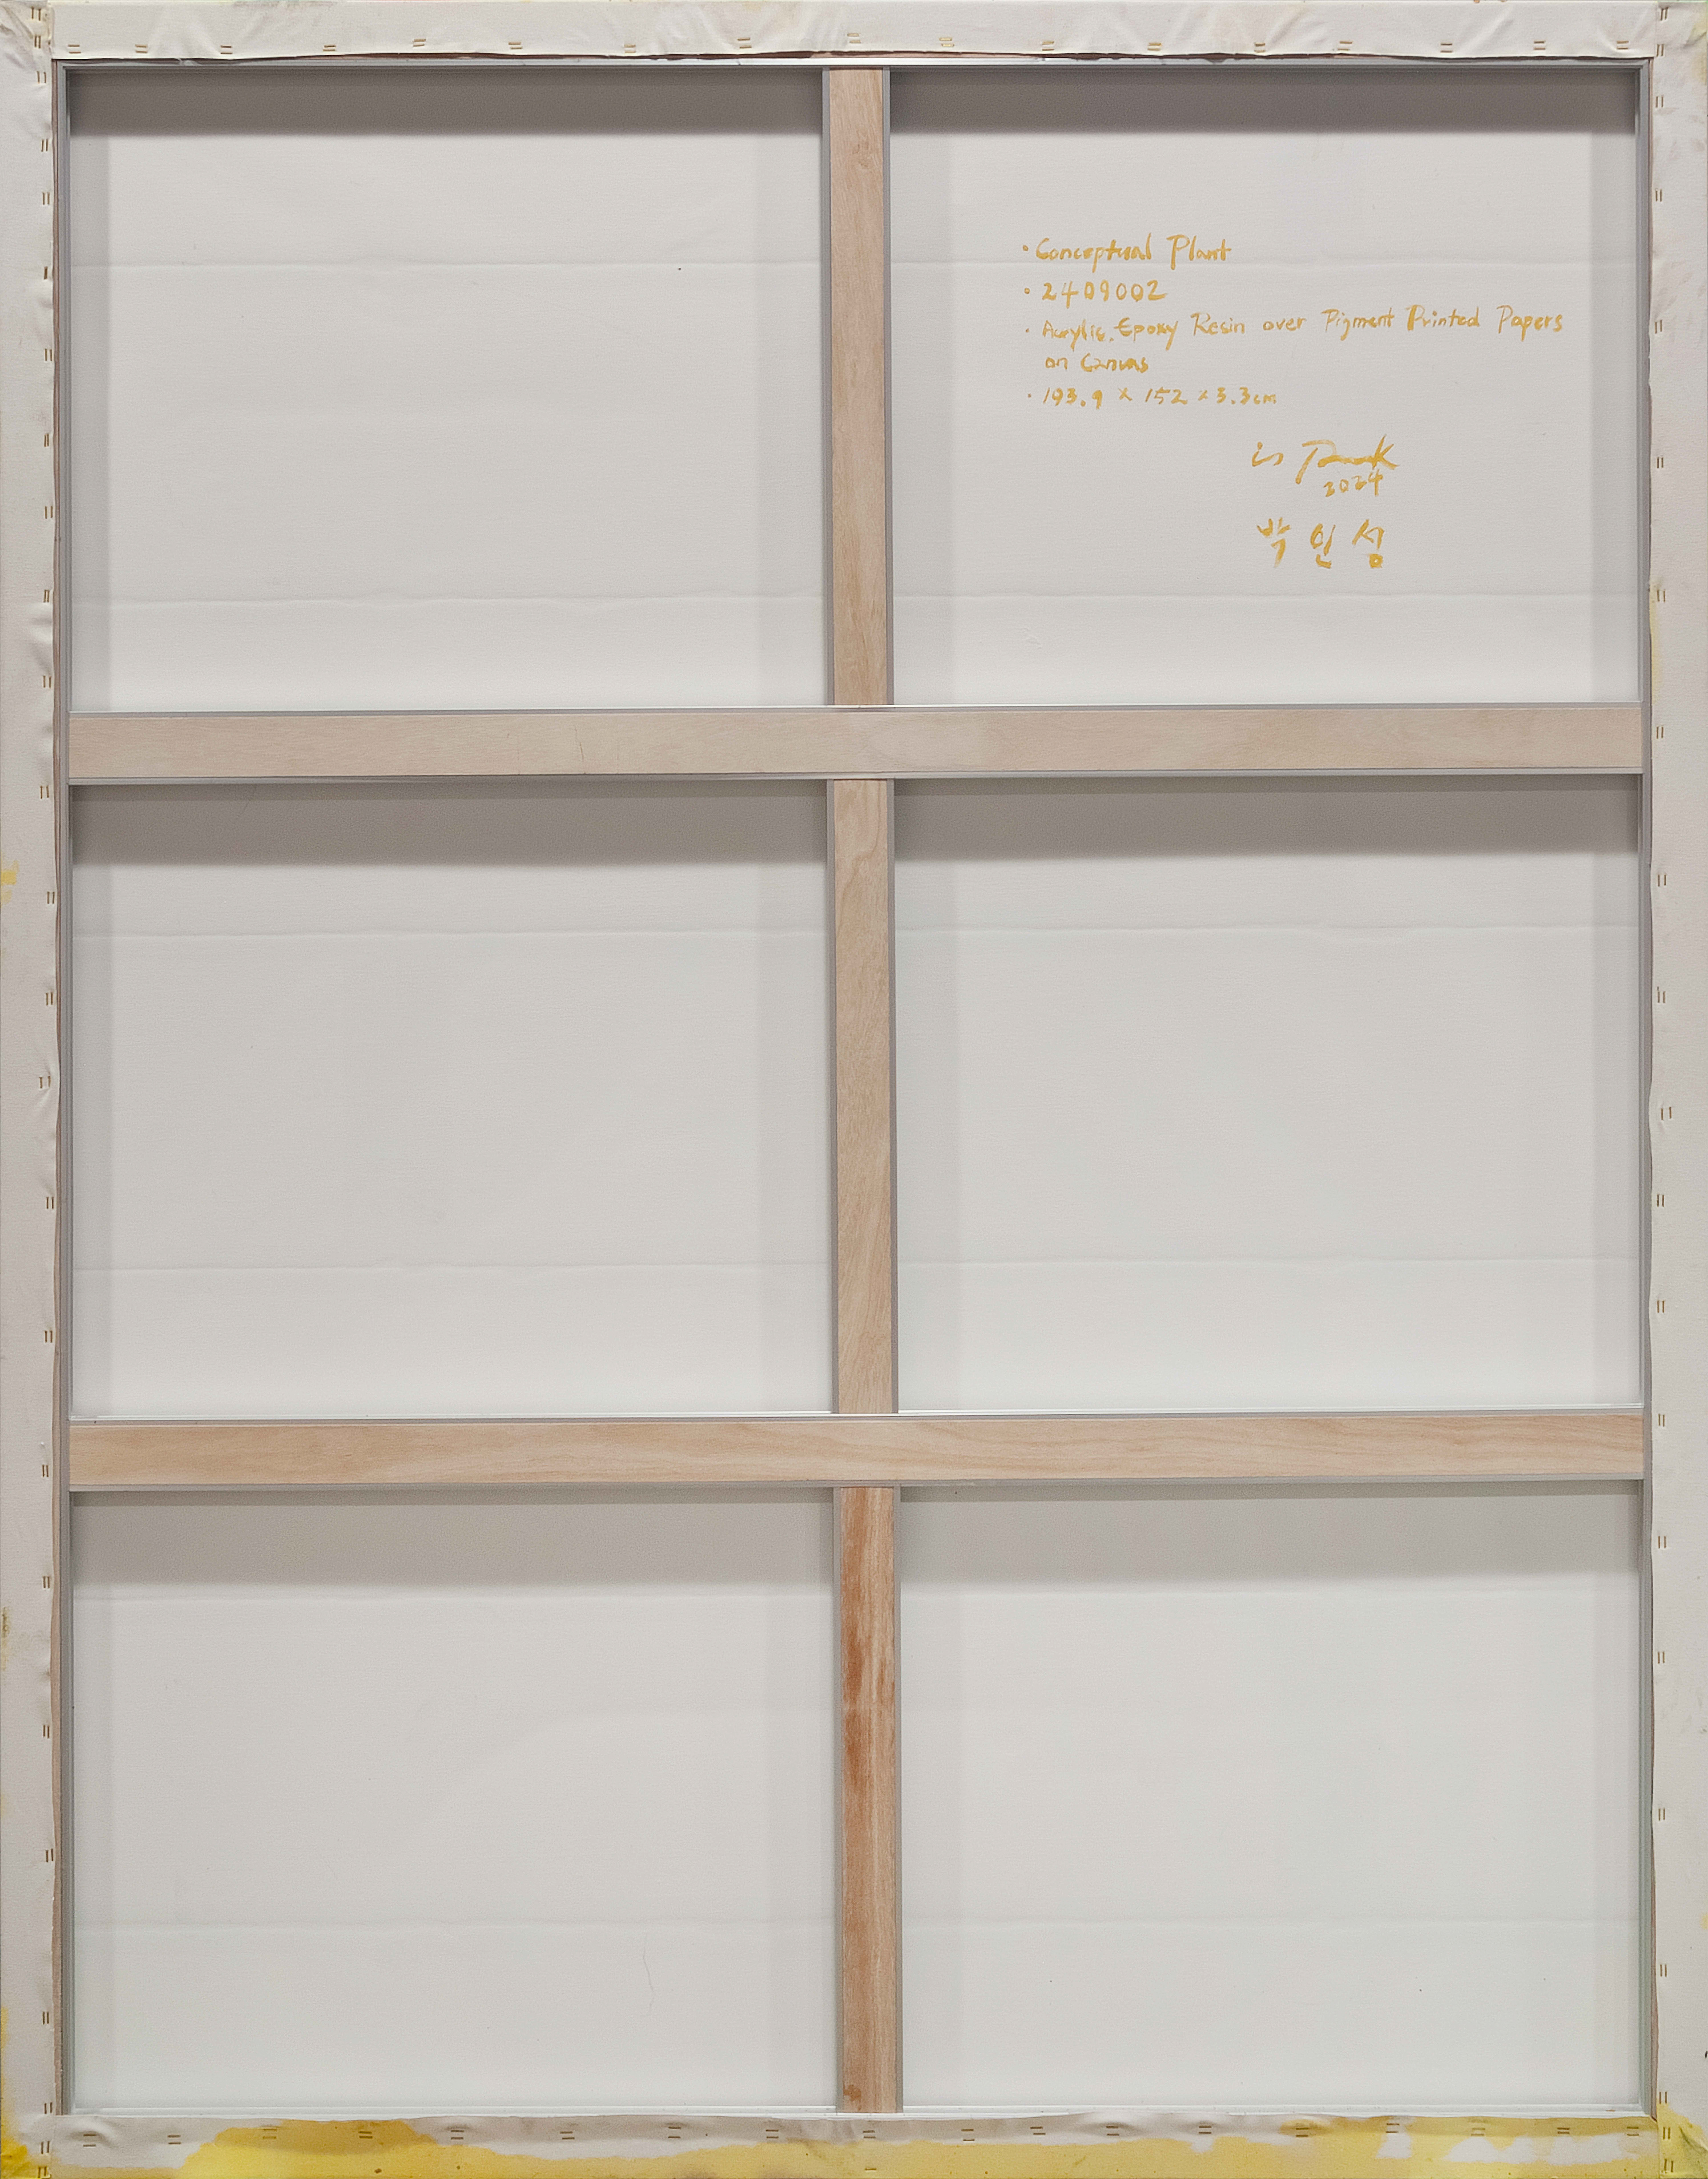 · Conceptual Plant
· 2409002
· Acrylic, Epoxy Resin over Pigment Printed Papers
on Canvas
· 193.9 x 152 x 3.3cm
is Park
2024
박인성